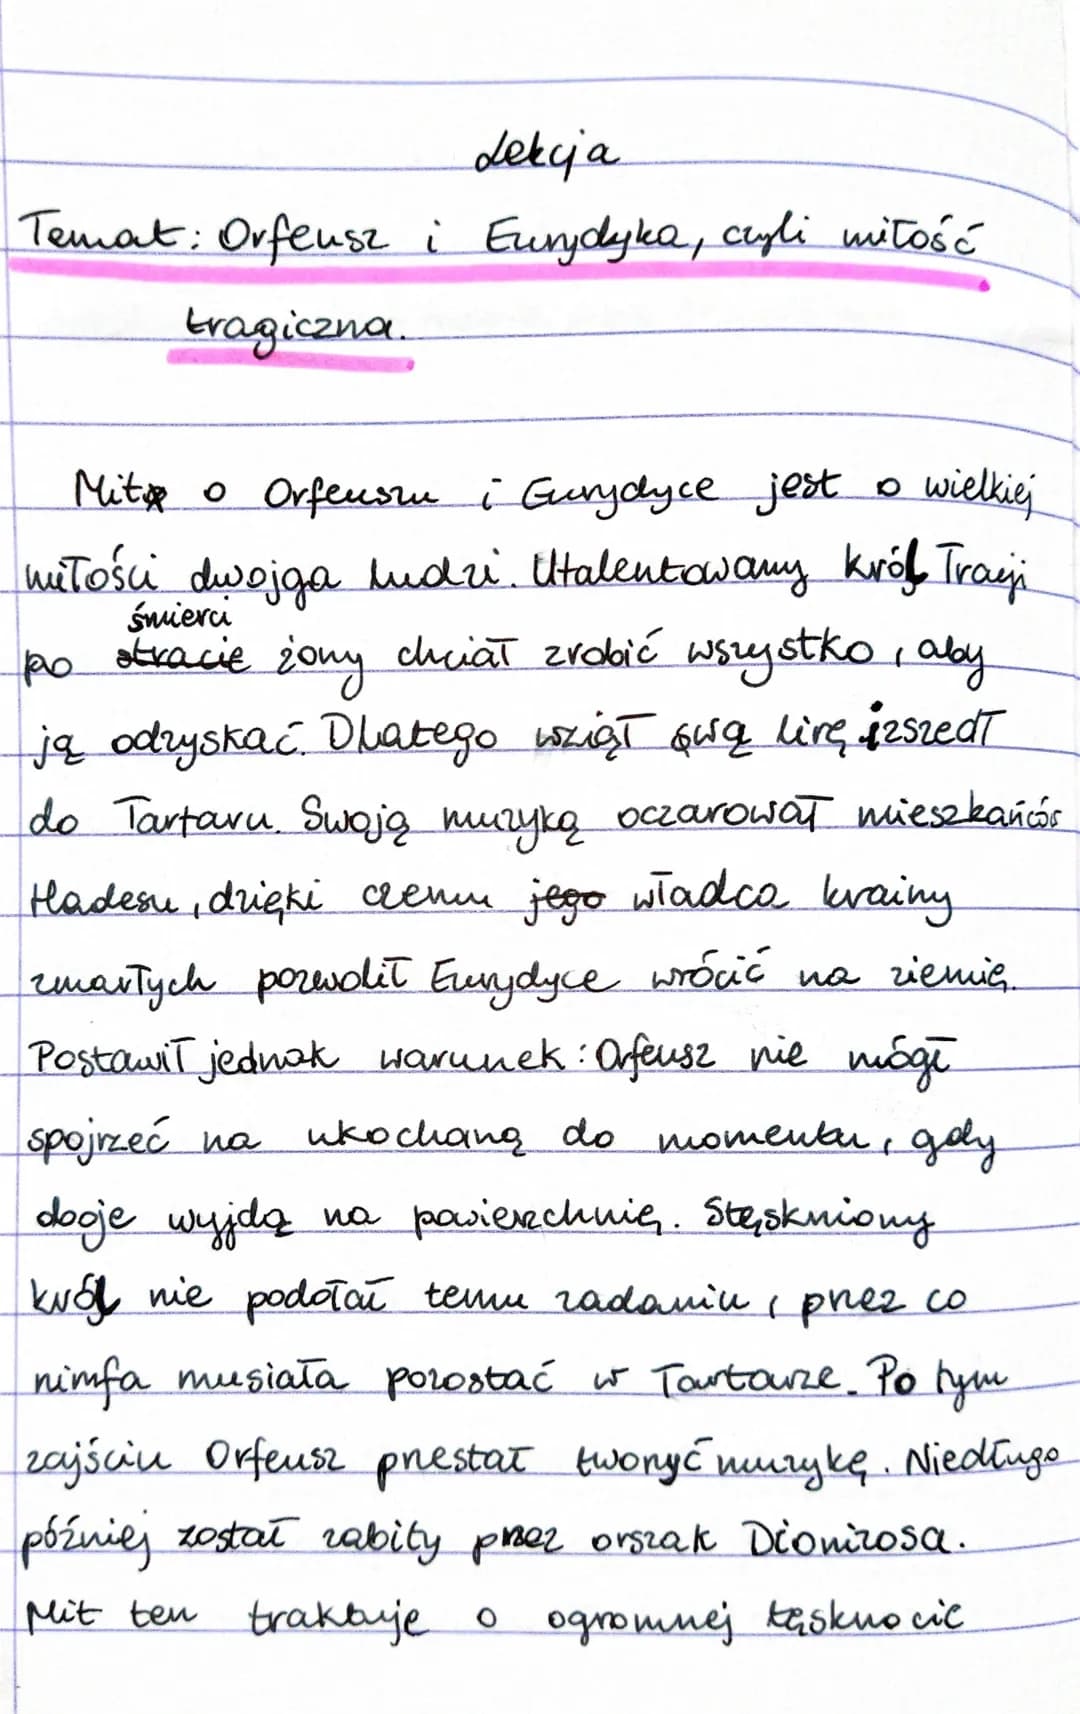 Lekcja
Temat: Orfeusz i Eurydyka, czyli miłość
tragiczna.
Mit o Orfeuszu i Eurydyce jest o wielkiej
miłości dwojga ludzi. Utalentowany król Tracji
śmierci
po stracie żony chciał zrobić wszystko, aby
ją odzyskać. Dlatego wziął swą lirę i zszedł
do Tartaru. Swoją muzyką oczarował mieszkańców
Hadesu, dzięki czemu jego władca krainy
zmarłych pozwolił Eurydyce wrócić na ziemię.
Postawił jednak warunek: Orfeusz nie mógł
spojrzeć na ukochaną do momentu, gdy
dooje wyjdą na powierzchnię. Stęskniony
król nie podołał temu zadaniu, przez co
nimfa musiała pozostać w Tartarze. Po tym
zajściu Orfeusz przestał tworzyć muzykę. Niedługo
później został zabity przez orszak Dionizosa.
Mit ten traktuje o ogromnej tęsknocie